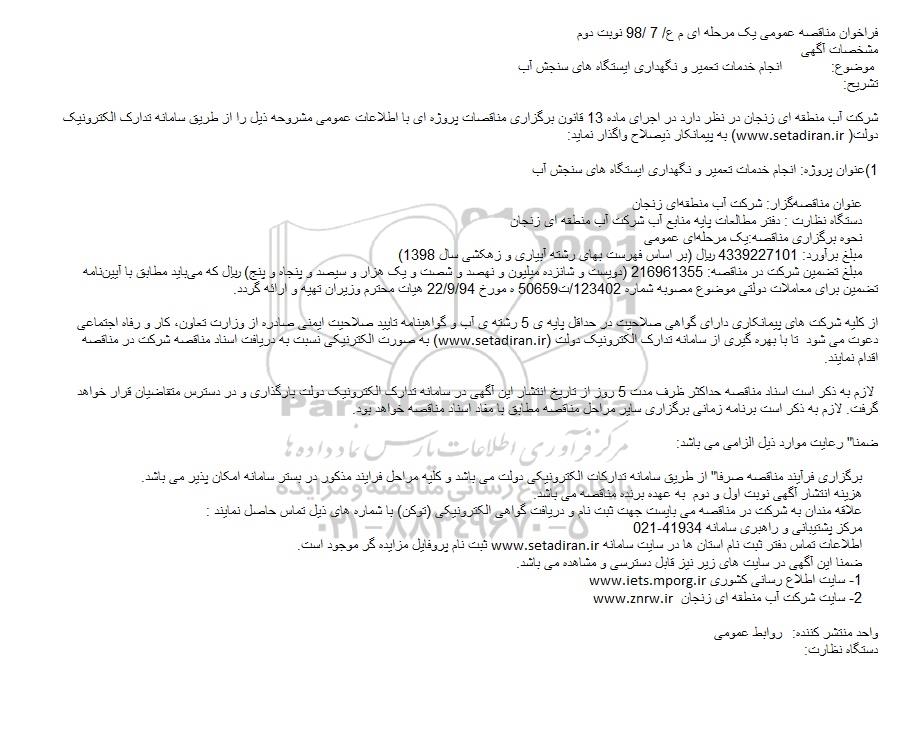 فراخوان مناقصه عمومی یک مرحله ای م ع/ 7 /98 نوبت دوم
مشخصات آگهی
موضوع: انجام خدمات تعمیر و نگهداری ایستگاه های سنجش آب
تشریح:
شرکت آب منطقه ای زنجان در نظر دارد در اجرای ماده 13 قانون برگزاری مناقصات پروژه ای با اطلاعات عمومی مشروحه ذیل را از طریق سامانه تدارک الکترونیک
دولت( www.setadiran.ir) به پیمانکار ذیصلاح واگذار نماید:
1)عنوان پروژه: انجام خدمات تعمیر و نگهداری ایستگاه های سنجش آب
عنوان مناقصه‌گزار: شرکت آب منطقه‌ای زنجان
دستگاه نظارت : دفتر مطالعات پایه منابع آب شرکت آب منطقه ای زنجان
نحوه برگزاری مناقصه:یک مرحله‌ای عمومی
مبلغ برآورد: 4339227101 ریال (بر اساس فهرست بهای رشته آبیاری و زهکشی سال 1398)
مبلغ تضمین شرکت در مناقصه: 216961355 (دویست و شانزده میلیون و نهصد و شصت و یک هزار و سیصد و پنجاه و پنج) ریال که می‌باید مطابق با آیین‌نامه
تضمین برای معاملات دولتی موضوع مصوبه شماره 123402/ت50659 ه مورخ 22/9/94 هیات محترم وزیران تهیه و ارائه گردد.
از کلیه شرکت های پیمانکاری دارای گواهی صلاحیت در حداقل پایه ی 5 رشته ی آب و گواهینامه تایید صلاحیت ایمنی صادره از وزارت تعاون، کار و رفاه اجتماعی
دعوت می شود تا با بهره گیری از سامانه تدارک الکترونیک دولت (www.setadiran.ir) به صورت الکترنیکی نسبت به دریافت اسناد مناقصه شرکت در مناقصه
اقدام نمایند.
لازم به ذکر است اسناد مناقصه حداکثر ظرف مدت 5 روز از تاریخ انتشار این آگهی در سامانه تدارک الکترونیک دولت بارگذاری و در دسترس متقاضیان قرار خواهد
گرفت. لازم به ذکر است برنامه زمانی برگزاری سایر مراحل مناقصه مطابق با مفاد اسناد مناقصه خواهد بود.
ParsNamadData
ضمنا" رعایت موارد ذیل الزامی می باشد:
مرکز فرآوری اطلاعات پارس نماد داده ها
برگزاری فرآیند مناقصه صرفا" از طریق سامانه تدارکات الکترونیکی دولت می باشد و کلیه مراحل فرایند مذکور در بستر سامانه امکان پذیر می باشد.
پایگاه اطلاع رسانی مناقصه و مزایده
هزینه انتشار آگهی نوبت اول و دوم به عهده برنده مناقصه می باشد.
علاقه مندان به شرکت در مناقصه می بایست جهت ثبت نام و دریافت گواهی الکترونیکی (توکن) با شماره های ذیل تماس حاصل نمایند :
۰۲۱-۸۸۳۴۹۶۷۰-۵
مرکز پشتیبانی و راهبری سامانه 41934-021
اطلاعات تماس دفتر ثبت نام استان ها در سایت سامانه www.setadiran.ir ثبت نام پروفایل مزایده گر موجود است.
ضمنا این آگهی در سایت های زیر نیز قابل دسترسی و مشاهده می باشد.
1- سایت اطلاع رسانی کشوری www.iets.mporg.ir
2- سایت شرکت آب منطقه ای زنجان www.znrw.ir
واحد منتشر کننده: روابط عمومی
دستگاه نظارت: